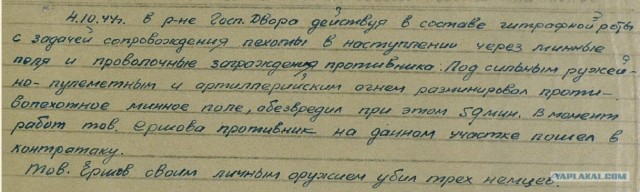 4.10.44г. в р-не Госп. Двора действуя в составе штрафной роты
с задачей сопровождения пехоты в наступлении через минные
поля и проволочные заграждения противника. Под сильным ружей
но-пулеметным и артиллерийским огнем разминировал проти-
вопехотное минное поле, обезвредил при этом 59 мин. В момент
работ тов. Ершова противник на данном участке пошел в
контратаку.
Тов. Ершов своим личным оружием убил трех немцев.
YAPLAKAL.COM